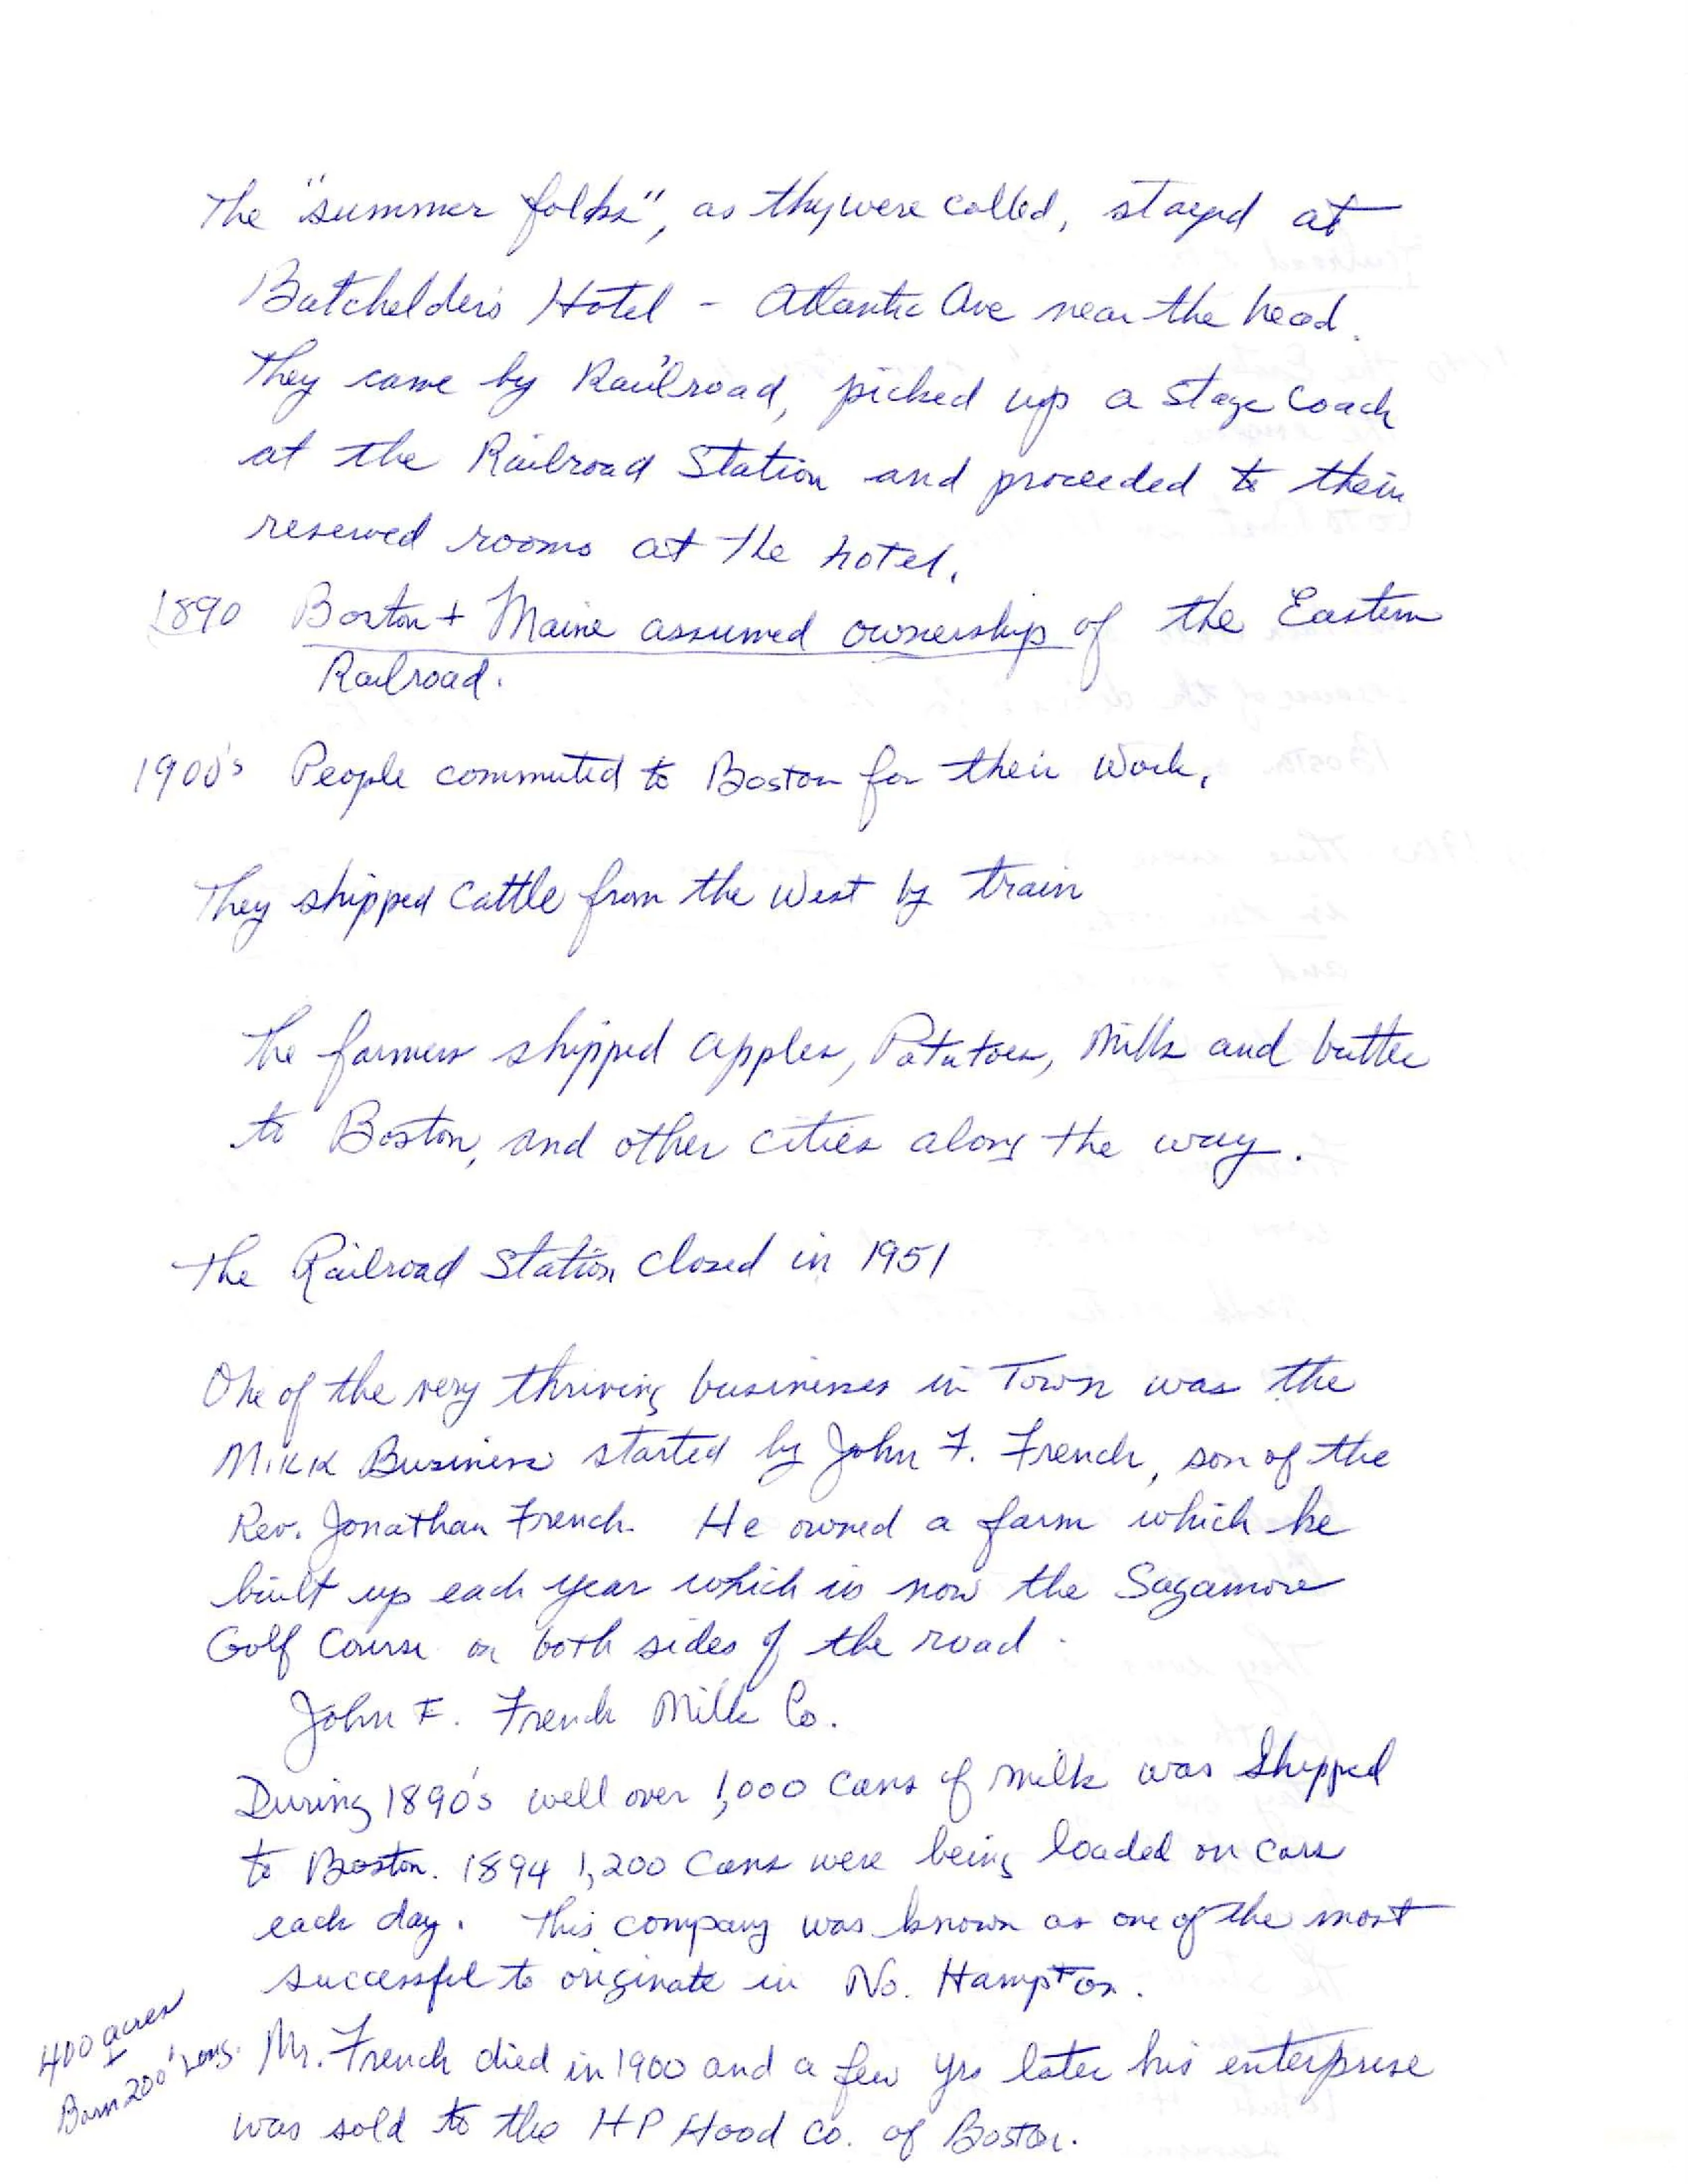 The "summer folks", as thy were called, stayed at
Batchelder's Hotel - Atlantic Ave near the head.
They came by Railroad, picked up a stage coach
at the Railroad Station and proceeded to their
reserved rooms at the hotel.
1890 Boston + Maine assumed ownership of the Eastern
Railroad.
1900's People commuted to Boston for their work.
They shipped cattle from the West by train
The farmers shipped apples, Potatoes, Milk and butter
to Boston, and other cities along the way.
The Railroad Station closed in 1951
One of the very thriving businesses in Town was the
Milk Business started by John F. French, son of the
Rev. Jonathan French. He owned a farm which he
built up each year which is now the Sagamore
Golf Course on both sides of the road.
John F. French Milk Co.
During 1890's well over 1,000 cans of milk was shipped
to Boston. 1894 1,200 cans were being loaded on cars
each day. This company was known as one of the most
successful to originate in No. Hampton.
400 acres
Barn 200' Long.
Mr. French died in 1900 and a few yrs later his enterprise
was sold to the HP Hood Co. of Boston.